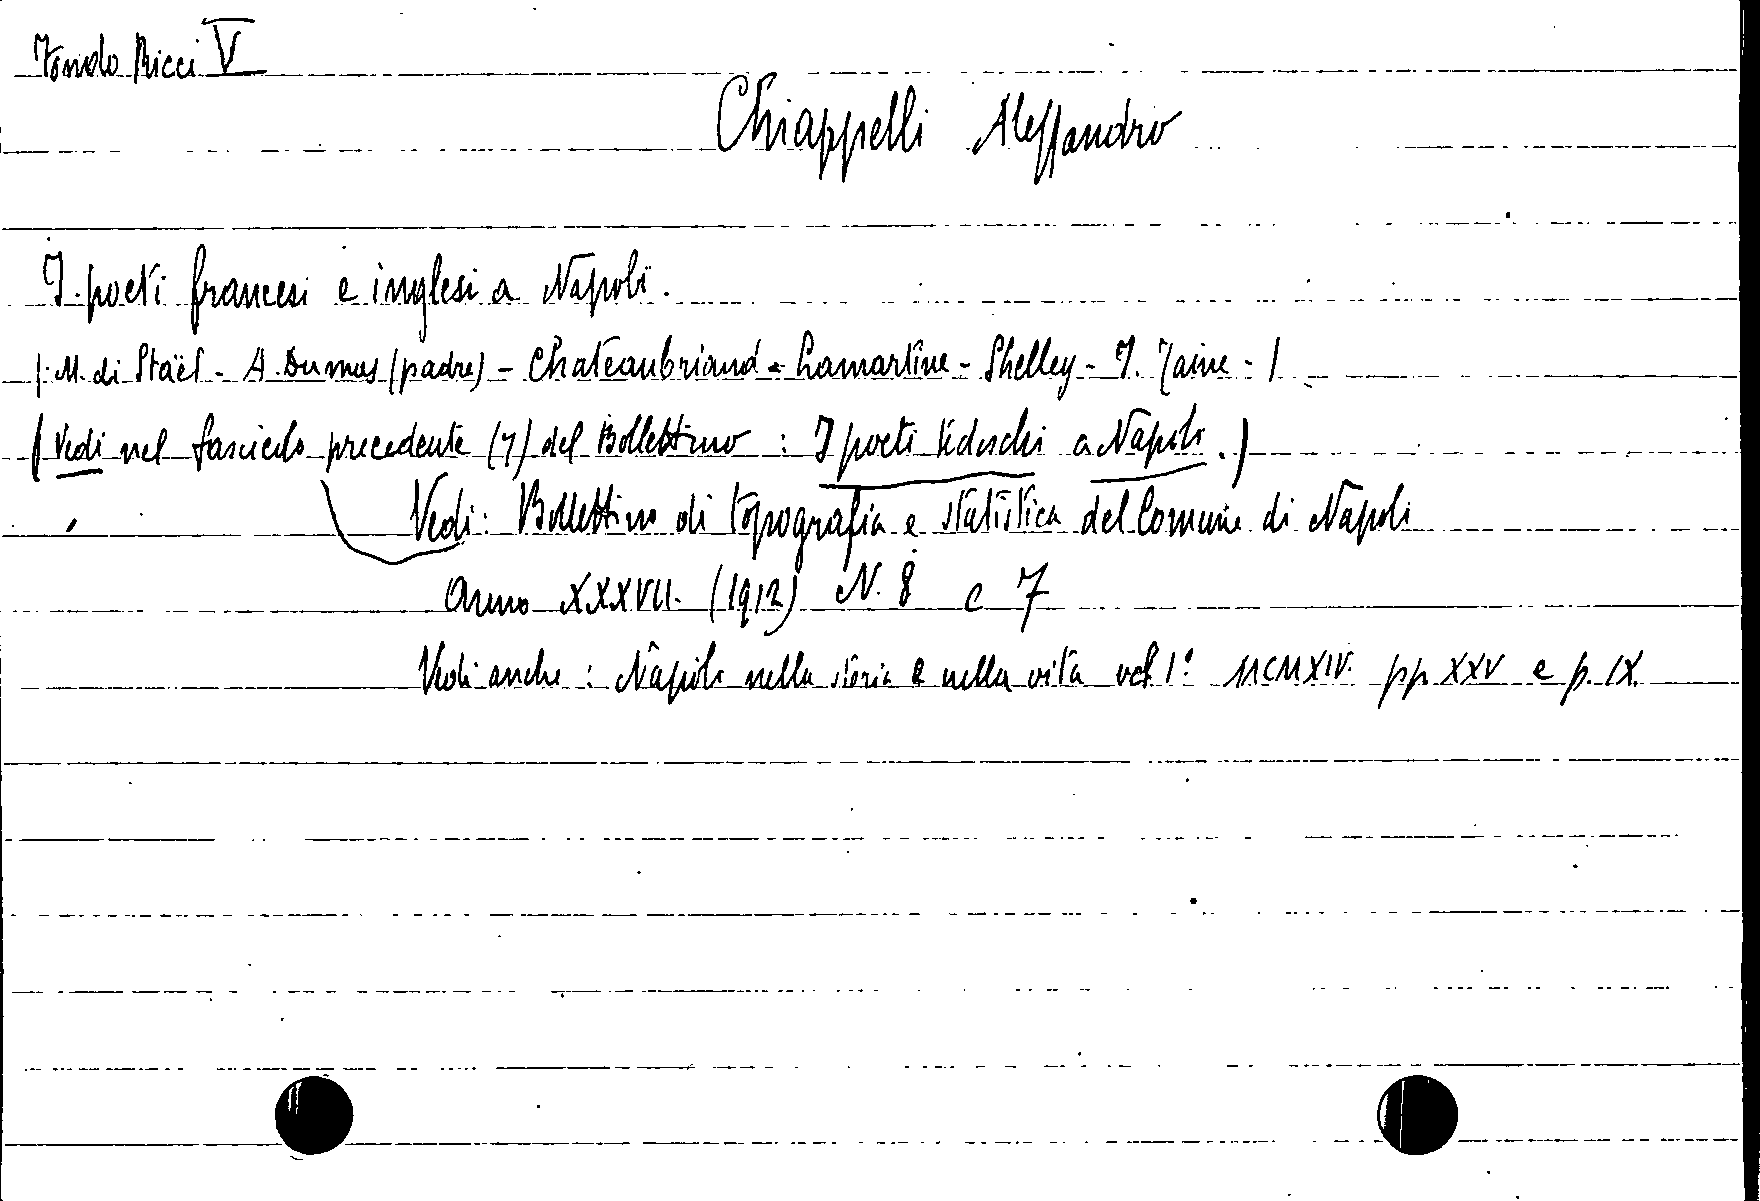 Fondo Ricci V
Chiappelli Alessandro
I poeti francesi e inglesi a Napoli.
(M. di Staël - A. Dumas (padre) - Chateaubriand - Lamartine - Shelley - I. Taine - )
(Vedi nel fascicolo precedente (7) del Bollettino : I poeti tedeschi a Napoli.)
Vedi: Bollettino di topografia e statistica del Comune di Napoli
Anno XXXVII. (1912) N. 8 e 7
Vedi anche : Napoli nella storia e nella vita vol. 1º MCMXIV. pp XXV e p. IX.